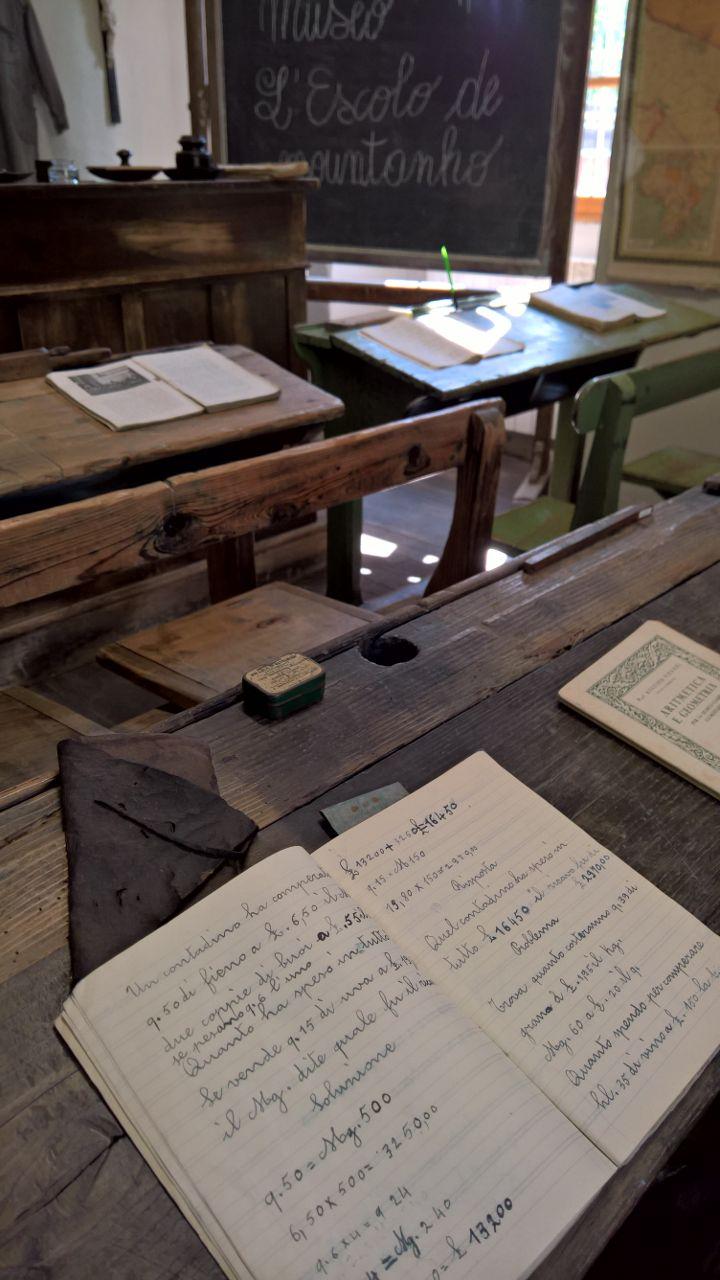 Museo
L'Escolo de
mountanho
ARITMETICA
E GEOMETRIA
Un contadino ha comperato
q. 50 di fieno a £. 6,50 il
due coppie di buoi a £. 55
se pesano q. 6 l'uno
Quanto ha speso in tutto
Se vende q. 15 di uva a £. 19
il Mg. dite quale fu il
Soluzione
q. 50 = Mg. 500
6,50 x 500 = 3250,00
q. 6 x 4 = q 24
4 = Mg. 240
0 = £ 13200
£ 13200 + 3250 £ 16450
q. 15 = Mg 150
19,80 x 150 = 2970,00
Risposta
Quel contadino ha speso in
tutto £ 16450 il ricavo fu di
£ 2970,00
Problema
Trova quanto costeranno q. 39 di
grano a £. 195 il kg.
Mg. 60 a £. 20 il q.
Quanto spendo per comperare
hl. 35 di vino a £. 150 la